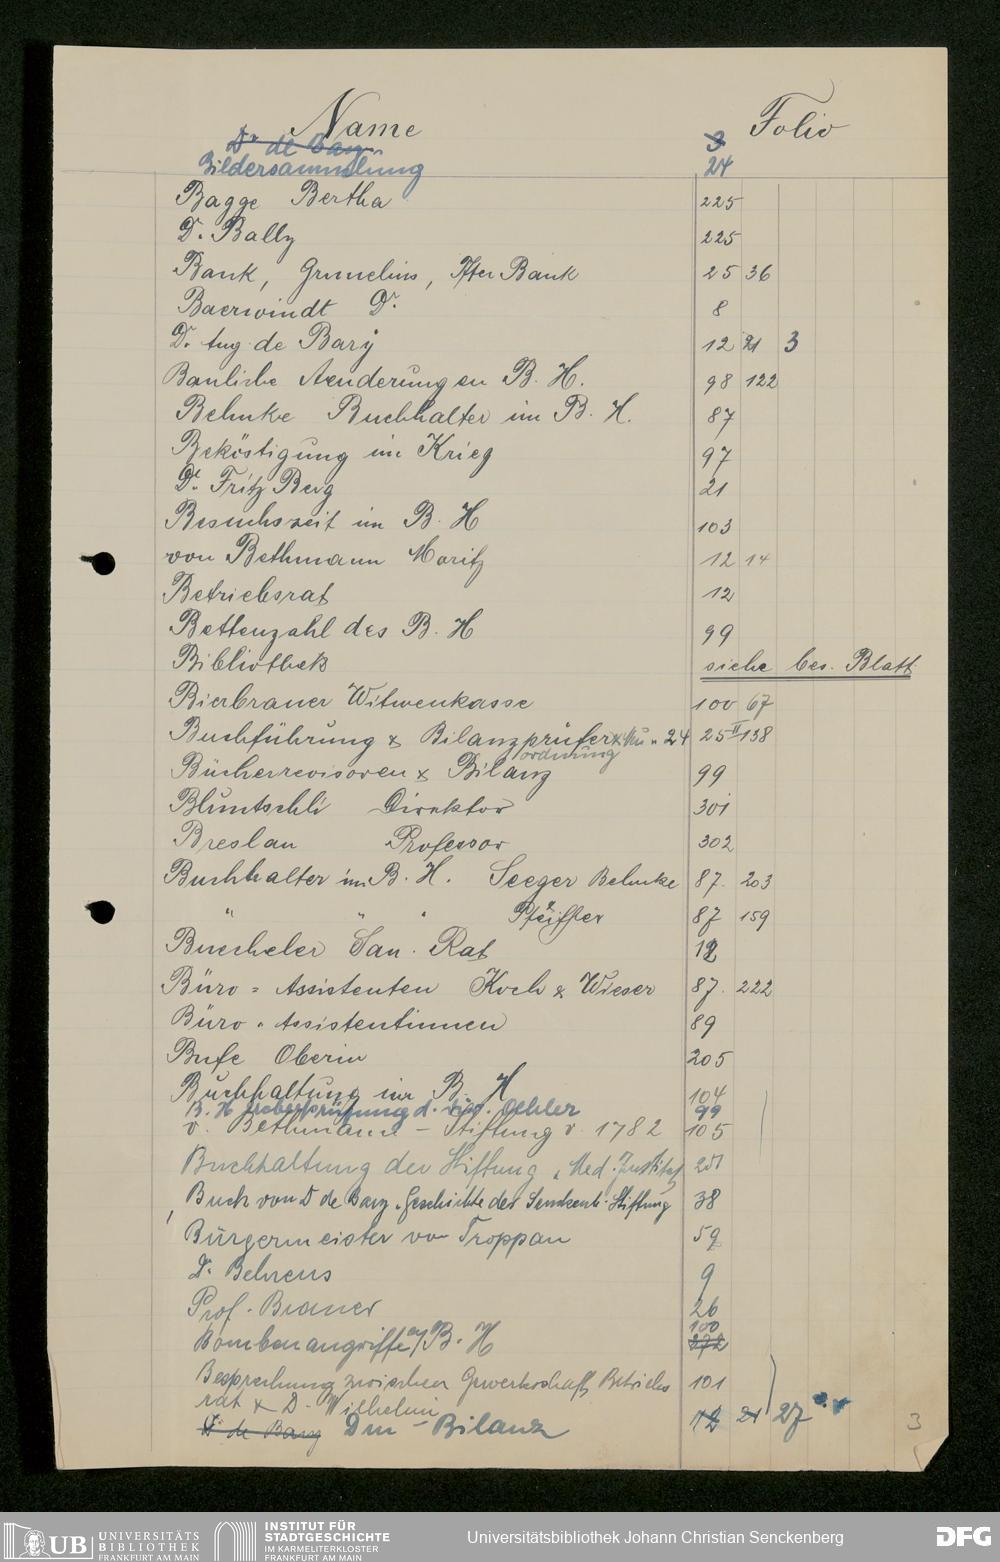 Name Folio
Dr de Bary 3
Bildersammlung 24
Bagge Bertha 225
Dr. Bally 225
Bank, Grunelius, Bank 25 36
Baerwindt Dr. 8
Dr. Aug. de Bary 12 21 3
Bauliche Aenderungen B. H. 98 122
Behnke Buchhalter im B. H. 87
Beköstigung im Krieg 97
Dr. Fritz Berg 21
Besuchszeit im B. H 103
von Bethmann Moritz 12 14
Betriebsrat 12
Bettenzahl des B. H 99
Bibliothek siehe bes. Blatt
Bierbrauer Witwenkasse 100 67
Buchführung & Bilanzprüfer 24 25 II 138
ordnung
Bücherrevisoren & Bilanz 99
Bluntschli Direktor 301
Breslau Professor 302
Buchhalter im B. H. Seeger Behnke 87. 203
" " " Pfeiffer 87 159
Buecheler San. Rat 12
Büro = Assistenten Koch & Wieser 87. 222
Büro = Assistentinnen 89
Bufe Oberin 205
Buchhaltung im B. H 104
B. H Ueberprüfung d. Oehler 99
v. Bethmann - Stiftung v. 1782 105
Buchhaltung der Stiftung, Med. Institut 201
Buch von D de Bary. Geschichte der Senckenb. Stiftung 38
Bürgermeister von Troppau 59
Dr. Behrens 9
Prof. Brauer 26
Bombenangriffe a/B. H 100
Besprechung zwischen Gewerkschaft, Betriebs 101
rat & D. Wilhelmi
Dr de Bary Dm - Bilanz 12 21 27
3
UB UNIVERSITÄTS
BIBLIOTHEK
FRANKFURT AM MAIN
INSTITUT FÜR
STADTGESCHICHTE
IM KARMELITERKLOSTER
FRANKFURT AM MAIN
Universitätsbibliothek Johann Christian Senckenberg
DFG